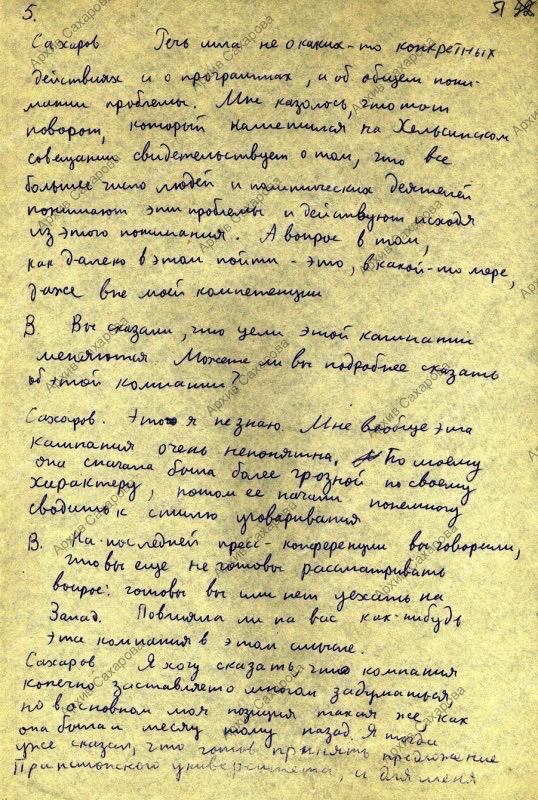 5.
Сахаров Речь шла не о каких-то конкретных
действиях и о программах, а об общем пони-
мании проблемы. Мне казалось, что тот
поворот, который наметился на Хельсинском
совещании свидетельствует о том, что все
большее число людей и политических деятелей
понимают эти проблемы и действуют исходя
из этого понимания. А вопрос в том,
как далеко в этом пойти - это, в какой-то мере,
даже вне моей компетенции
В. Вы сказали, что цели этой кампании
меняются. Можете ли вы подробнее сказать
об этой компании?
Сахаров. Этого я не знаю. Мне вообще эта
кампания очень непонятна. По моему
она сначала была более грозной по своему
характеру, потом ее начали понемногу
сводить к стилю уговаривания
В. На последней пресс-конференции вы говорили,
что вы еще не готовы рассматривать
вопрос: готовы вы или нет уехать на
Запад. Повлияла ли на вас как-нибудь
эта компания в этом смысле.
Сахаров Я хочу сказать, что компания
конечно заставляет о многом задуматься,
но в основном моя позиция такая же, как
она была и месяц тому назад. Я тогда
уже сказал, что готов принять предложение
Принстонского университета, и для меня
Архив Сахарова